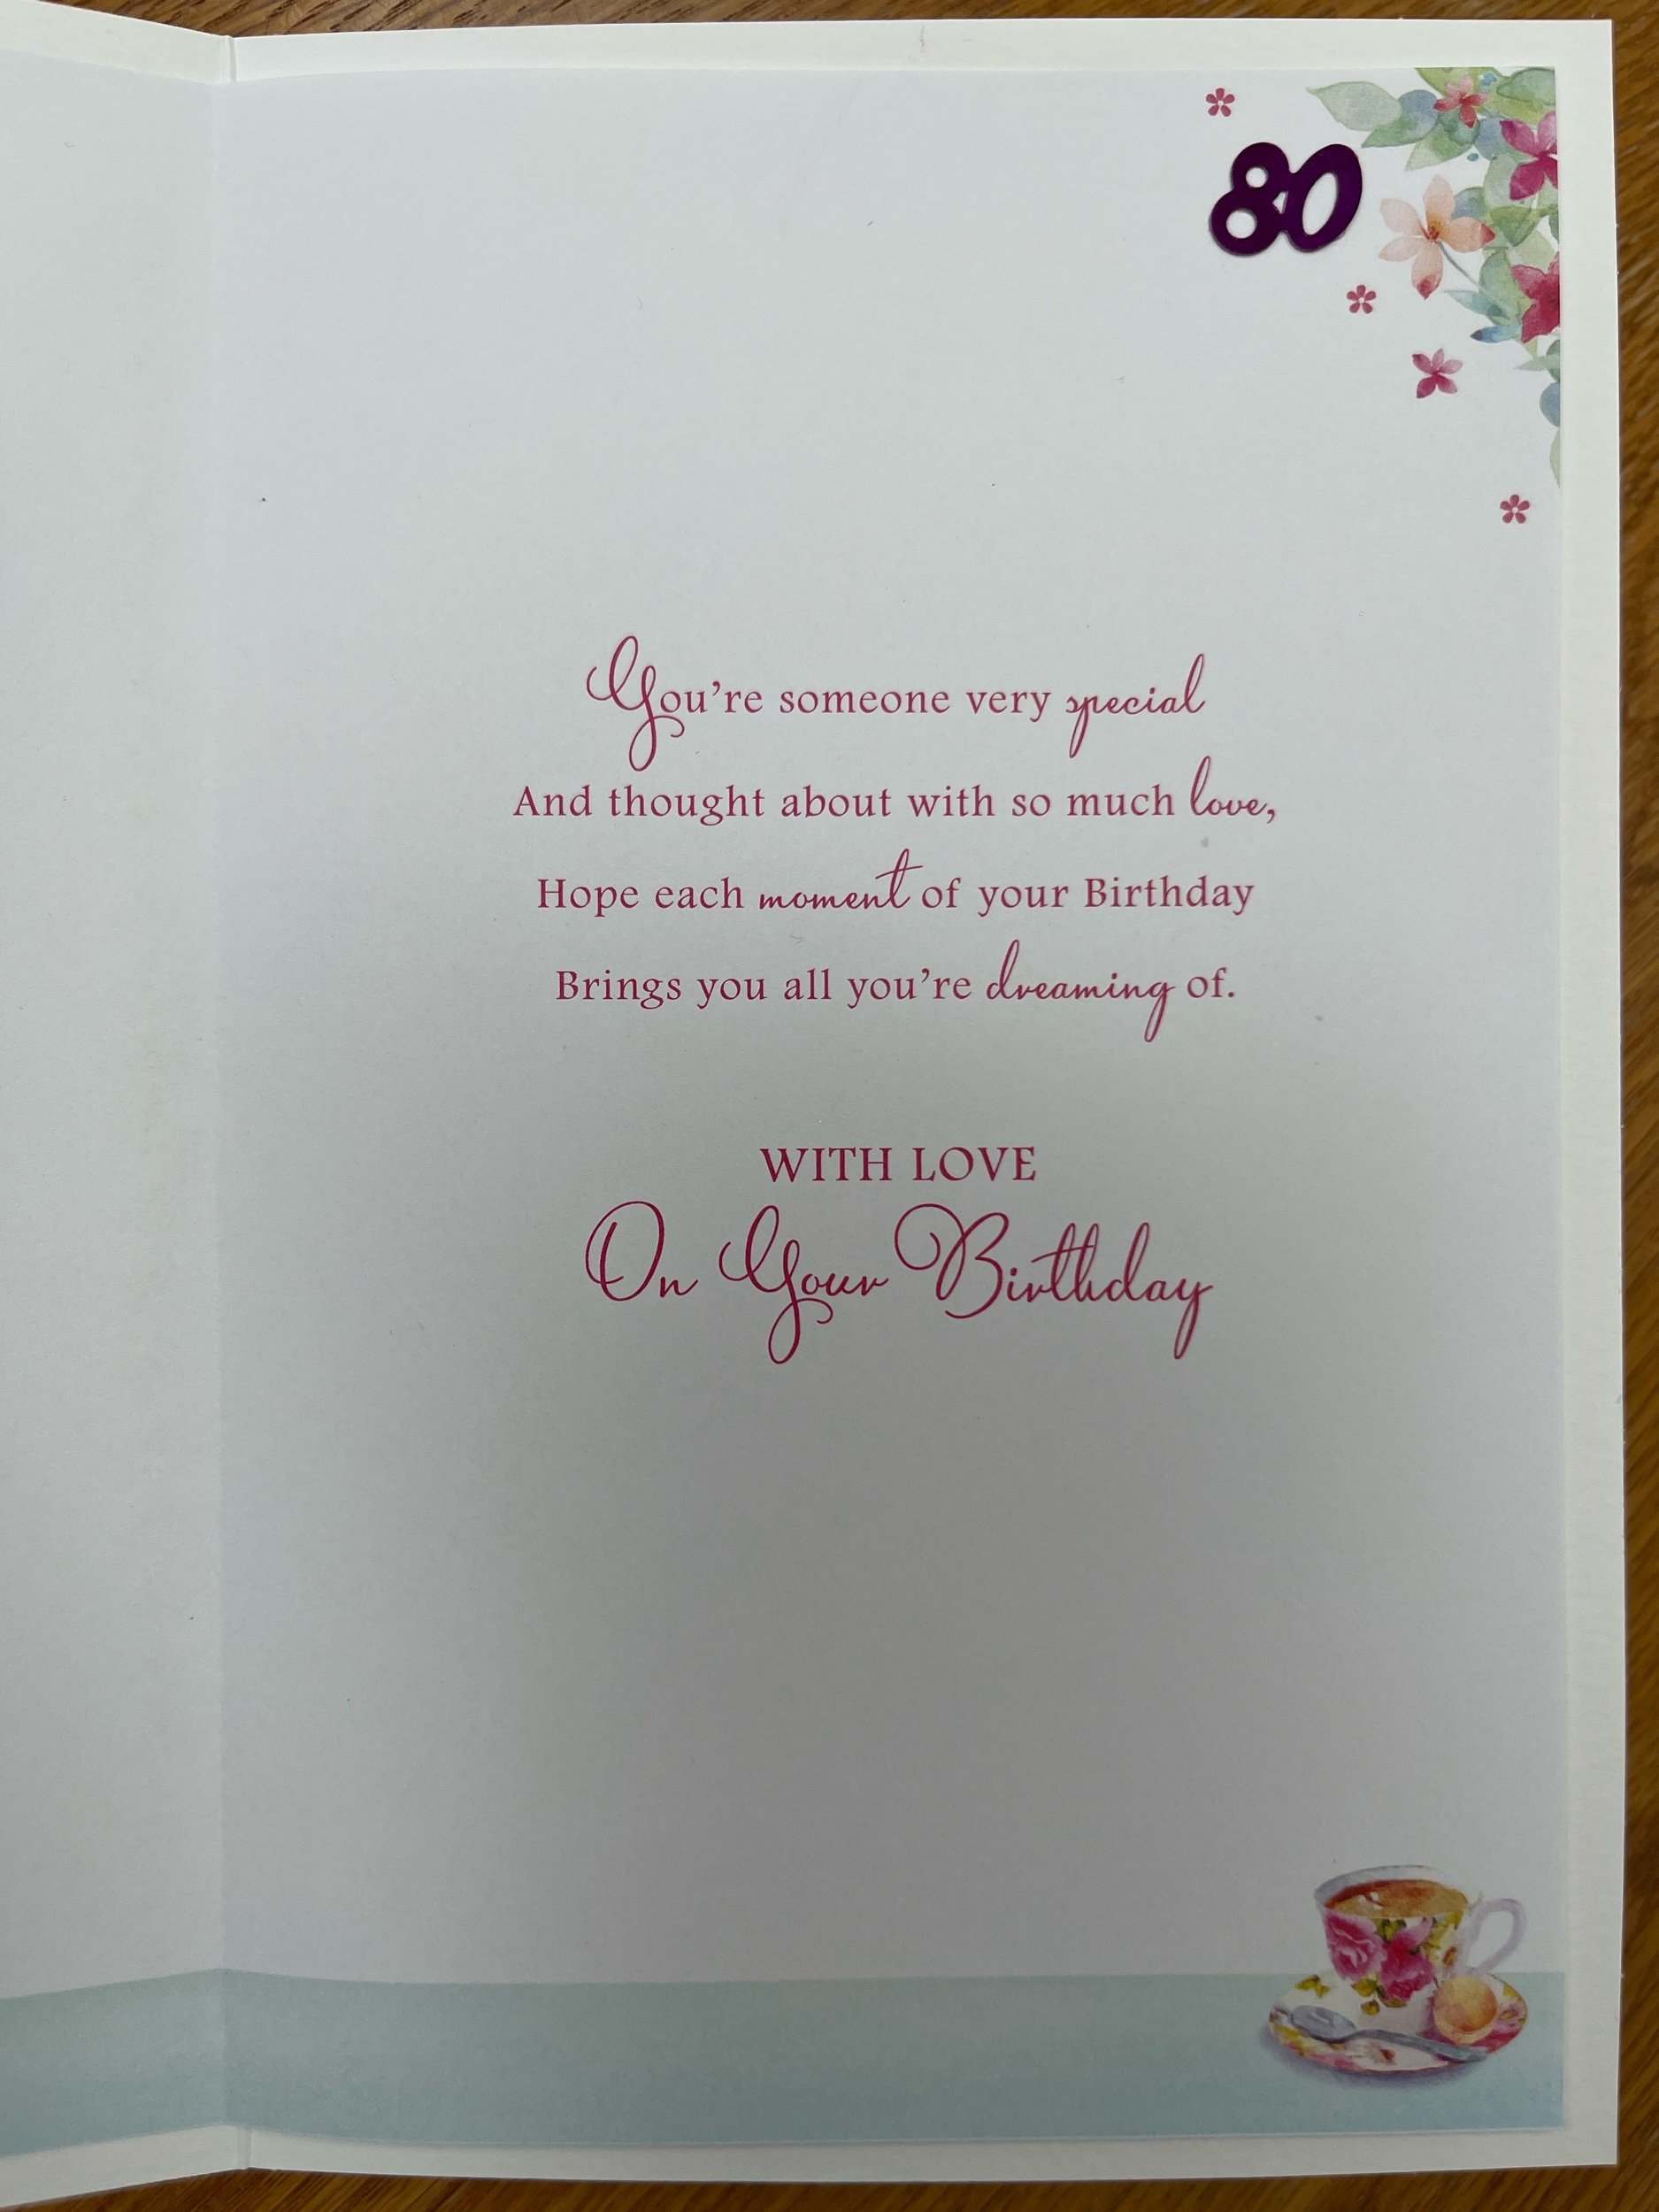 80
You're someone very special
And thought about with so much love,
Hope each moment of your Birthday
Brings you all you're dreaming of.
WITH LOVE
On Your Birthday